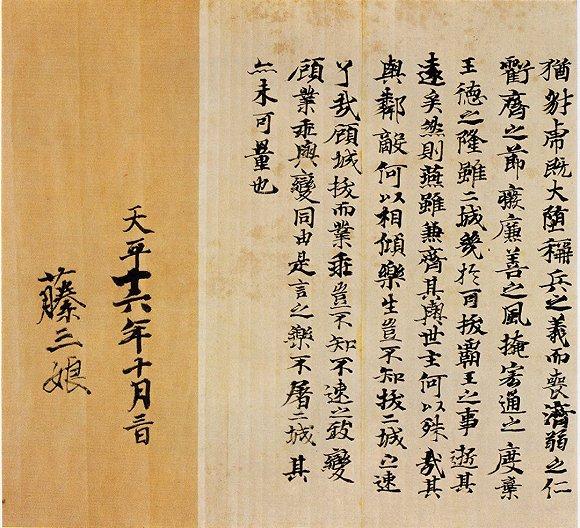 猶豺虎既大墮稱兵之義而喪濟弱之仁
虧齊之節癈廉善之風掩宏通之度棄
王德之隆雖二城幾於可拔霸王之事逝其
遠矣然則燕雖兼齊其與世主何以殊哉其
與鄰敵何以相傾樂生豈不知拔二城之速
了哉顧城拔而業乖豈不知不速之致變
顧業乖與變同由是言之樂不屠二城其
亦未可量也
天平十六年十月三日
藤三娘